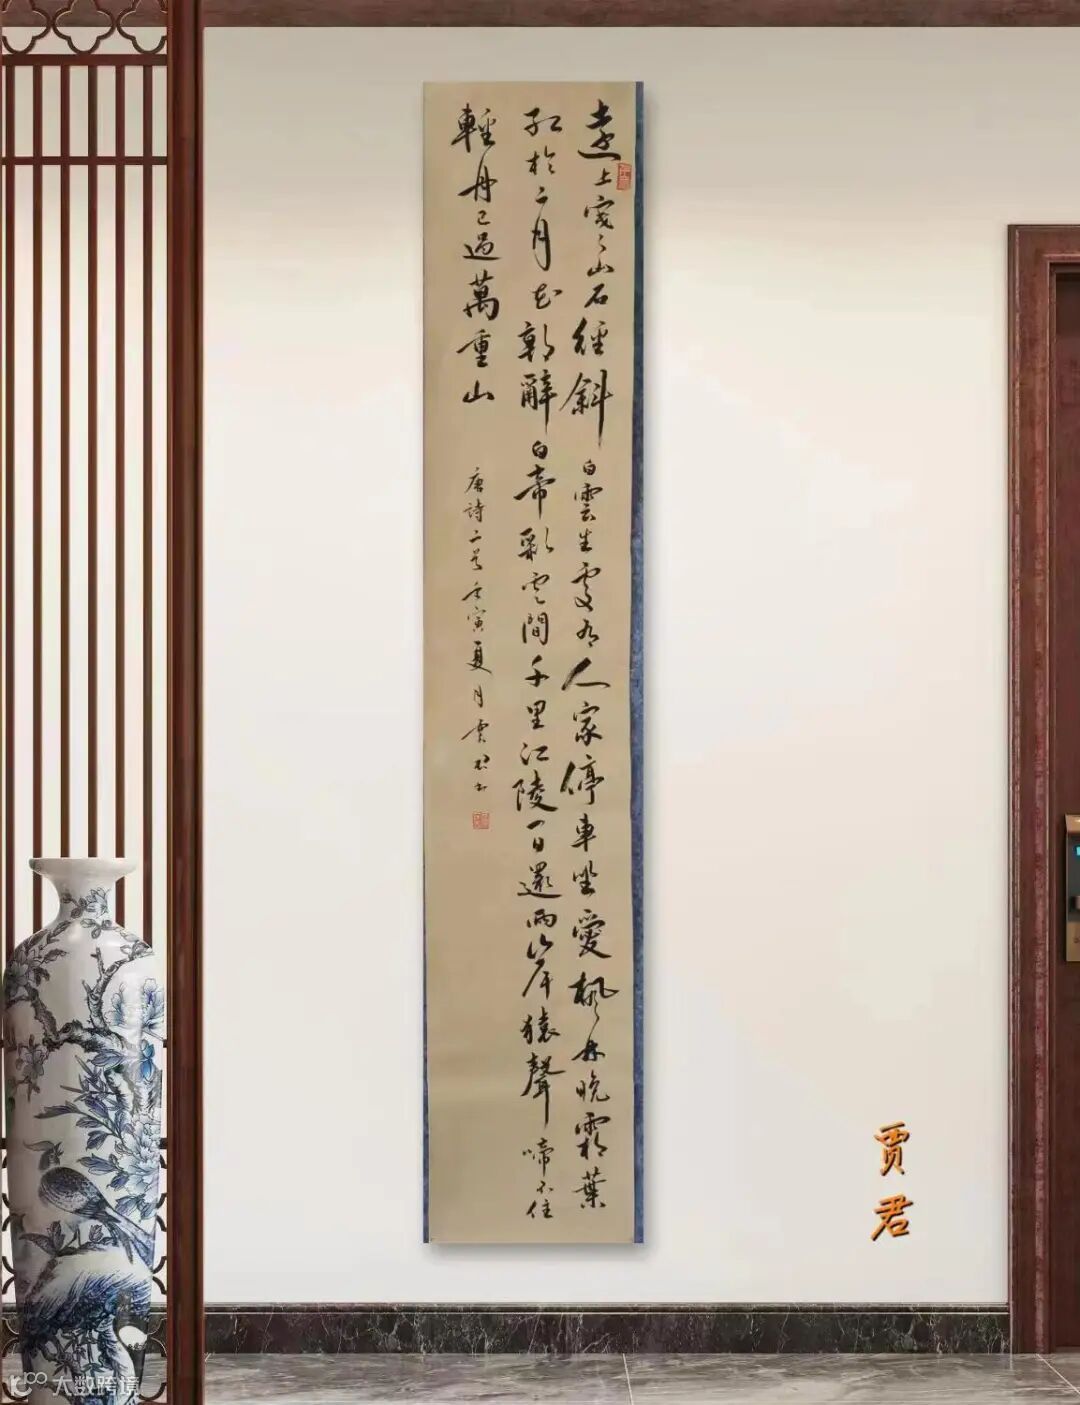 遠上寒山石徑斜白雲生處有人家停車坐愛楓林晚霜葉
紅於二月花朝辭白帝彩雲間千里江陵一日還兩岸猿聲啼不住
輕舟已過萬重山
唐詩二首壬寅夏月雲書
贾君
大数跨境